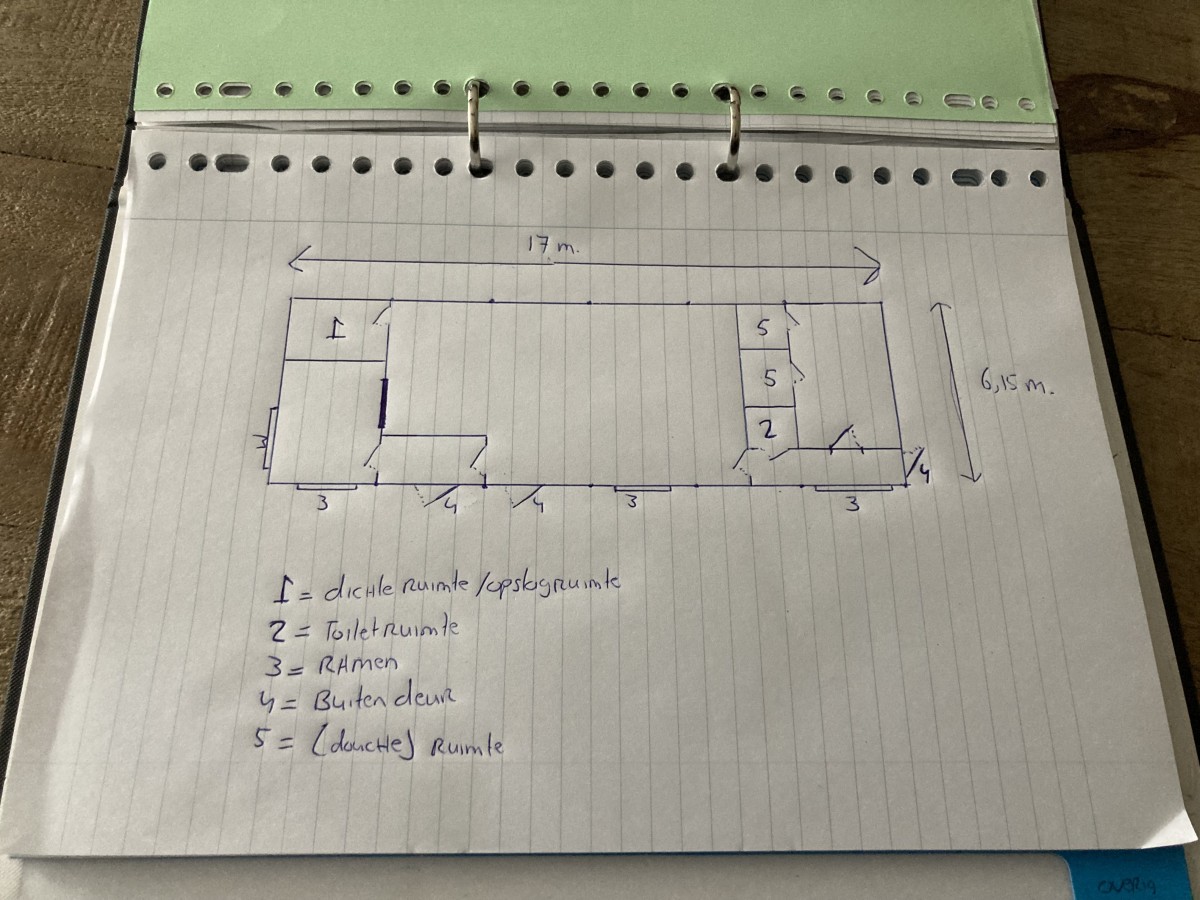 17 m.
1
5
5
6,15 m.
2
3
4
3
4
4
3
3
1 = dichte ruimte / opslagruimte
2 = Toiletruimte
3 = RAmen
4 = Buiten deur
5 = (douche) Ruimte
overig